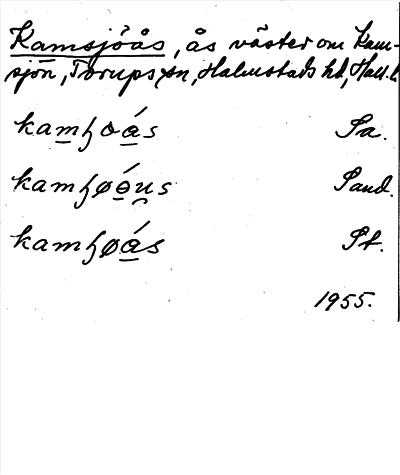 Kamsjöås, ås väster om Kam-
sjön, Torups sn, Halmstads hd, Hall. l.
kamɧoás Sa.
kamɧøǿu̯s Sand.
kamɧøás St.
1955.